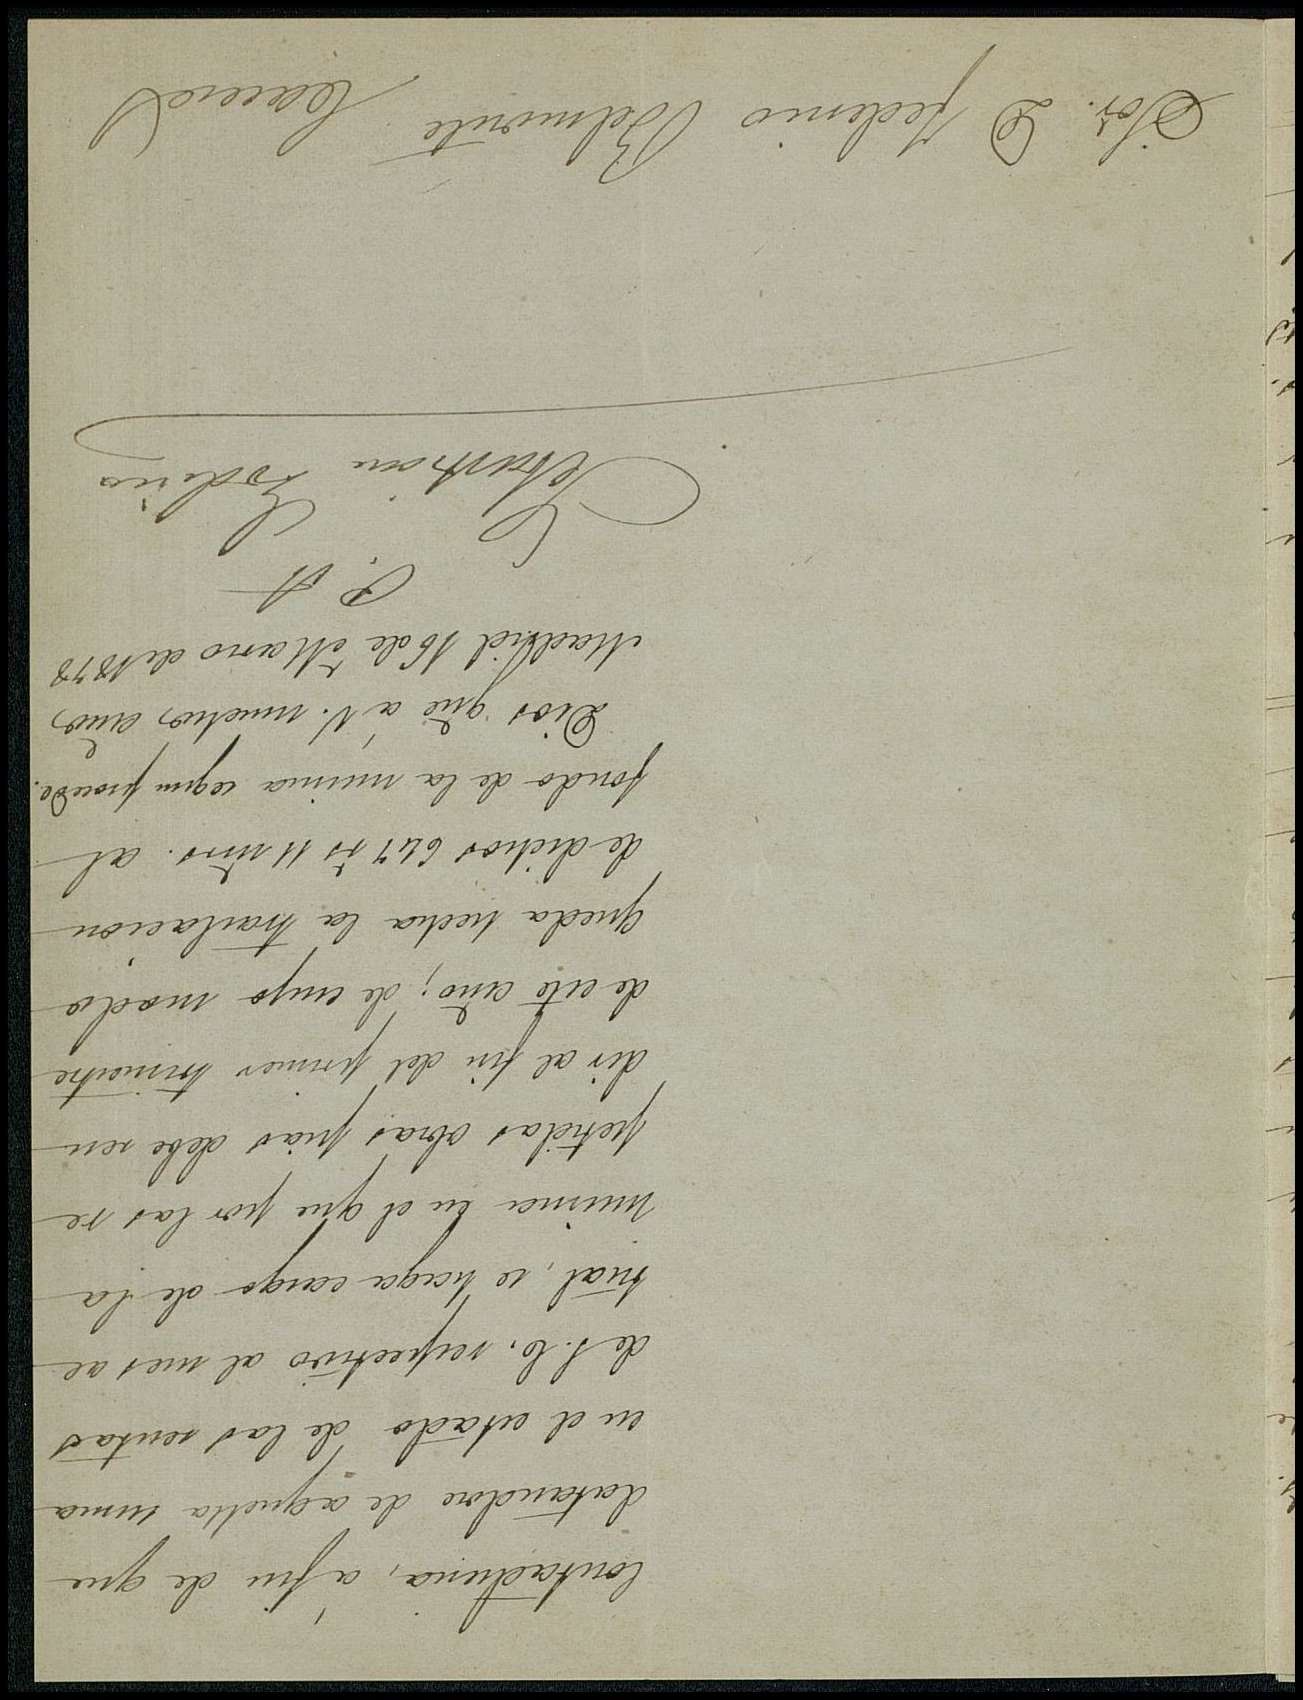 Contaduria, á fin de que
datandose de aquella suma
en el estado de las rentas
de S. E. respectivo al mes ac
tual, se haga cargo de la
misma en el que por las re
petidas obras pias debe ren
dir al fin del primer trimestre
de este año; de cuyo modo
queda hecha la traslacion
de dichos 647 rs 11 mrs. al
fondo de la misma segun procede.
Dios gue á V. muchos años
Madrid 16 de Marzo de 1878
P. A
Sebastian
Sor. D Federico Belmonte Caceres